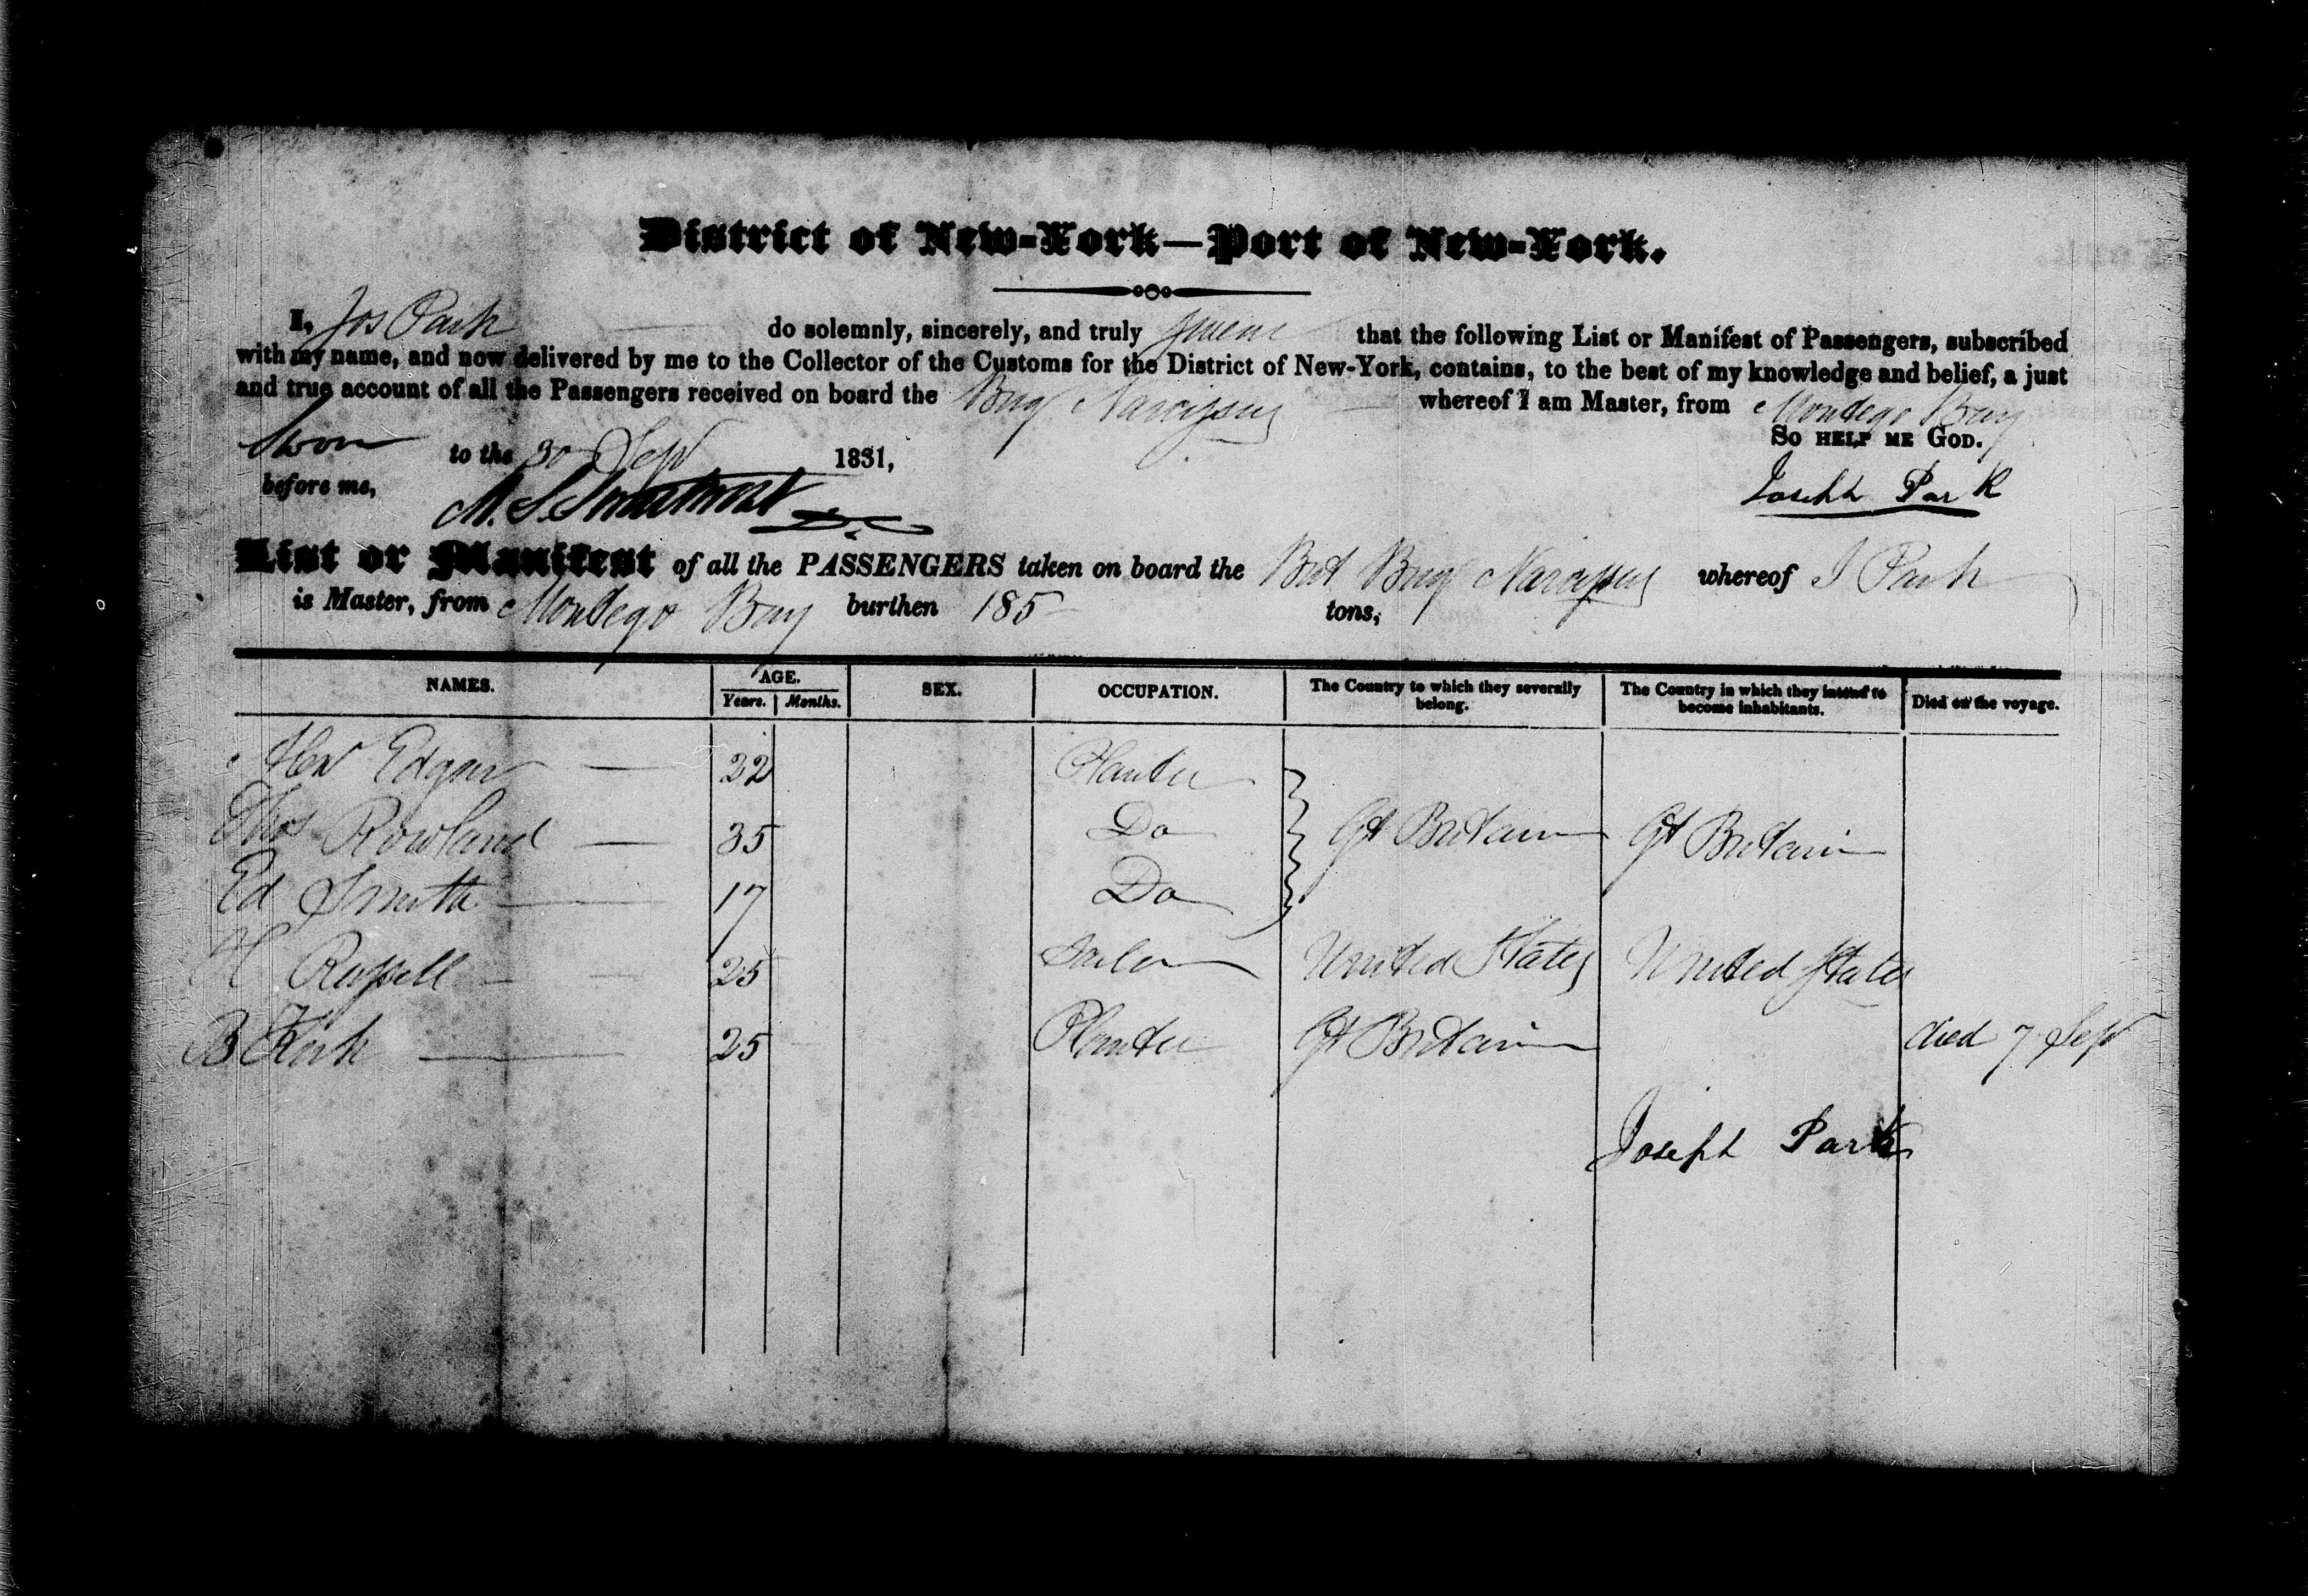 District of New-York—Port of New-York.
I, Jos Park do solemnly, sincerely, and truly swear that the following List or Manifest of Passengers, subscribed
with my name, and now delivered by me to the Collector of the Customs for the District of New-York, contains, to the best of my knowledge and belief, a just
and true account of all the Passengers received on board the Brig Narcissus whereof I am Master, from Montego Bay
So help me God.
Sworn to the 30 Sept 1831,
before me, Joseph Park
M. S.
List or Manifest of all the PASSENGERS taken on board the Brit Brig Narcissus whereof J Park
is Master, from Montego Bay burthen 185 tons,
NAMES. AGE. SEX. OCCUPATION. The Country to which they severally belong. The Country in which they intend to become inhabitants. Died on the voyage.
Years. Months.
Edgar 22 Planter
Thos Rowland 35 Do Gt Britain Gt Britain
Ed Smith 17 Do
H Russell 25 United States United States
B Kirk 25 Planter Gt Britain died 7 Sept
Joseph Park